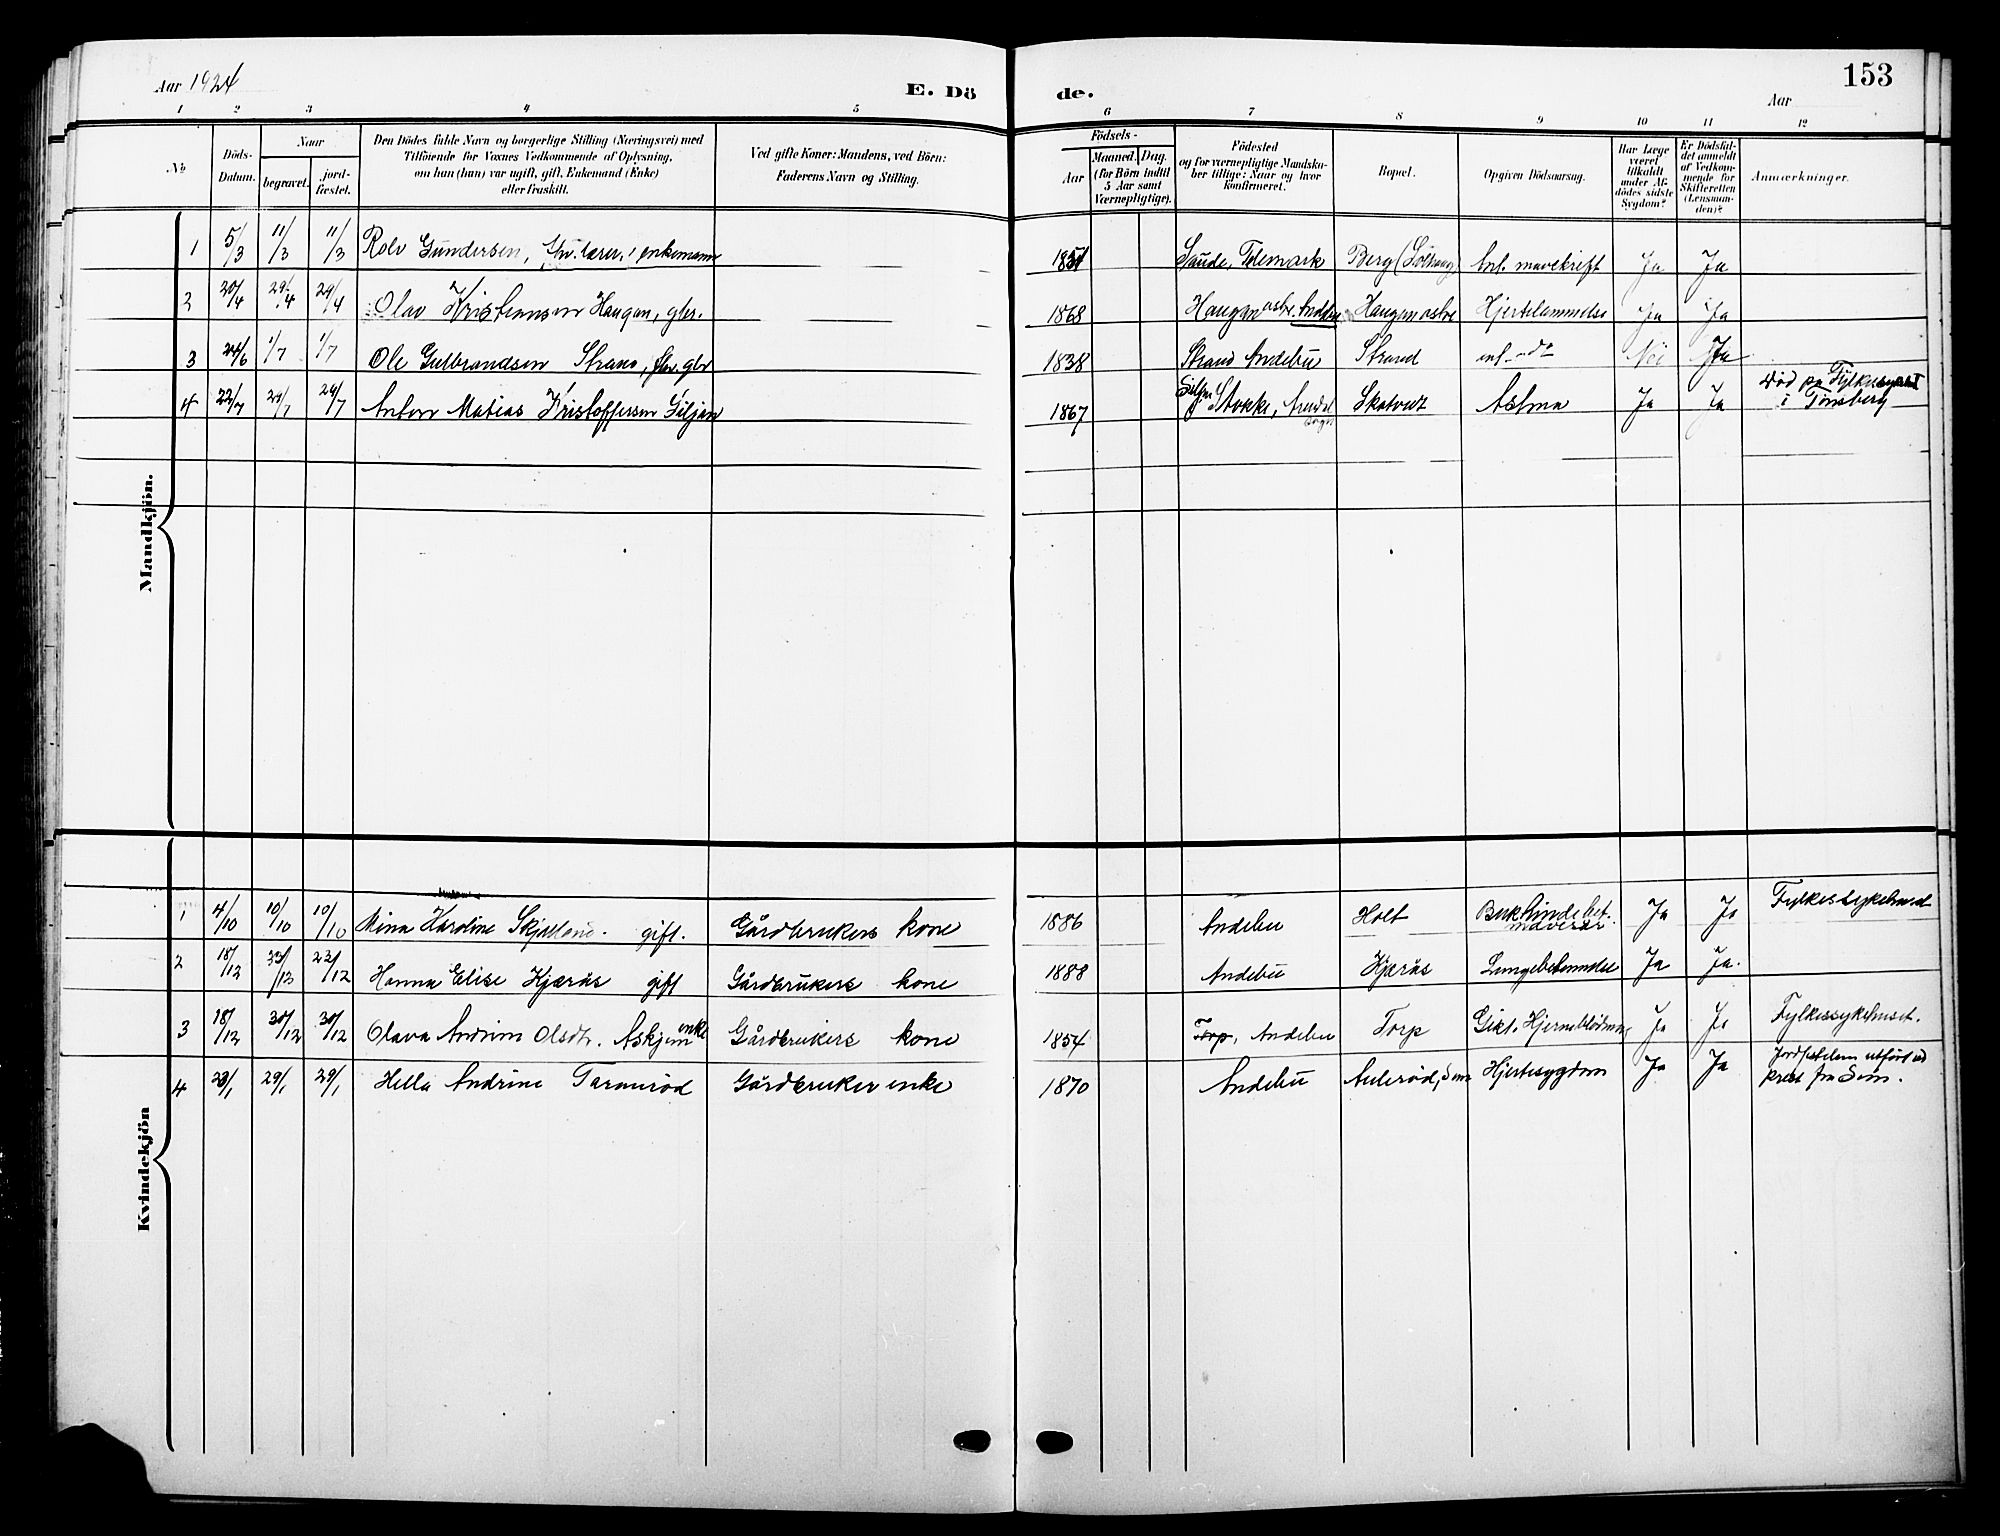 Aar 1924
E. Dö de.
153
Aar
1 2 3 4 5 6 7 8 9 10 11 12
No
Döds-Datum.
Naar
begravet.
jord-fæstet.
Den Dödes fulde Navn og borgerlige Stilling (Næringsvei) med
Tilföiende for Voxnes Vedkommende af Oplysning,
om han (hun) var ugift, gift, Enkemand (Enke)
eller fraskilt.
Ved gifte Koner: Mandens, ved Börn:
Faderens Navn og Stilling.
Födsels-
Aar
Maaned. Dag.
(for Börn indtil
5 Aar samt
Værnepligtige).
Födested
og for værnepligtige Mandska-
ber tillige: Naar og hvor
konfirmeret.
Bopæl.
Opgiven Dödsaarsag.
Har Læge
været
tilkaldt
under Af-
dödes sidste
Sygdom?
Er Dödsfal-
det anmeldt
af Vedkom-
mende for
Skifteretten
(Lensman-
den)?
Anmærkninger.
Mandkjön.
1 5/3 11/3 11/3 Rolv Gundersen, lærer, enkemann 1851 Saude, Telemark Berg mavekreft Ja Ja
2 20/4 29/4 29/4 Olav Kristiansen Haugan, gbr. 1868 Haugan østre, Andebu Haugan østre Hjertelammelse Ja Ja
3 24/6 1/7 1/7 Ole Gulbrandsen Strand, gbr 1838 Strand Andebu Strand Nei Ja
4 22/7 29/7 29/7 Anton Matias Kristoffersen Giljan 1867 Stokke, sogn Skatvedt Astma Ja Ja Död på Fylkessykeh i Tönsberg
Kvindekjön
1 4/10 10/10 10/10 Mina Karoline Skjelland. gift. Gårdbrukers kone 1886 Andebu Holt Bukhindebet. mavesår Ja Ja
2 18/12 23/12 23/12 Hanna Elise Kjærås gift Gårdbrukers kone 1888 Andebu Kjærås Lungebetennelse Ja Ja.
3 18/12 30/12 30/12 Olava Andrine Olsdtr. Askjem enke Gårdbrukers kone 1854 Torp, Andebu Torp Gikt. Hjerneblödning Ja Ja Fylkessykehuset.
4 23/1 29/1 29/1 Hella Andrine Taranröd Gårdbruker enke 1870 Andebu Auleröd, Sem Hjertesygdom Ja Ja Jordfestelsen utfört ved prest fra Sem.